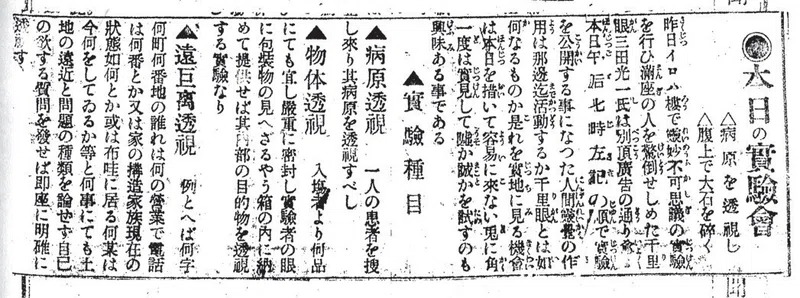 ●本日の實驗會
△病原を透視し
△腹上で大石を碎く
昨日イロハ樓で靈妙不可思議の實驗
を行ひ滿座の人を驚倒せしめた千里
眼三田光一氏は別項廣告の通り愈々
本日午后七時左記の順で實驗
を公開する事になつた人間靈覺の作
用は那邊迄活動するか千里眼とは如
何なるものか是れを實地に見る機會
は本日を措いて容易に來ない兎に角
一度は實見して嘘か誠かを試すのも
興味ある事である
▲實驗種目
▲病原透視 一人の患者を捜
し來り其病原を透視すべし
▲物体透視 入塲者より何品
にても宜し嚴重に密封し實驗者の眼
に包裝物の見へざるやう箱の內に納
めて提供せば其內部の目的物を透視
する實驗なり
▲遠距離透視 例とへば何字
何町何番地の誰れは何の營業で電話
は何番とか又は家の構造家族現在の
狀態如何とか或は布哇に居る何某は
今何をしてゐるか等と何事にても土
地の遠近と問題の種類を論せず自己
の欲する質問を發せば即座に明確に
透視す